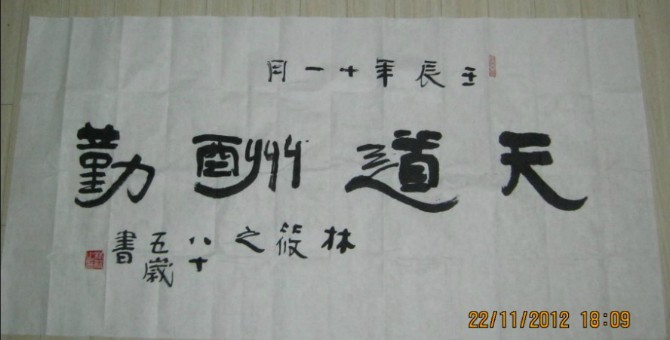 壬辰年十一月
天道酬勤
林筱之八十五歲書
22/11/2012 18:09